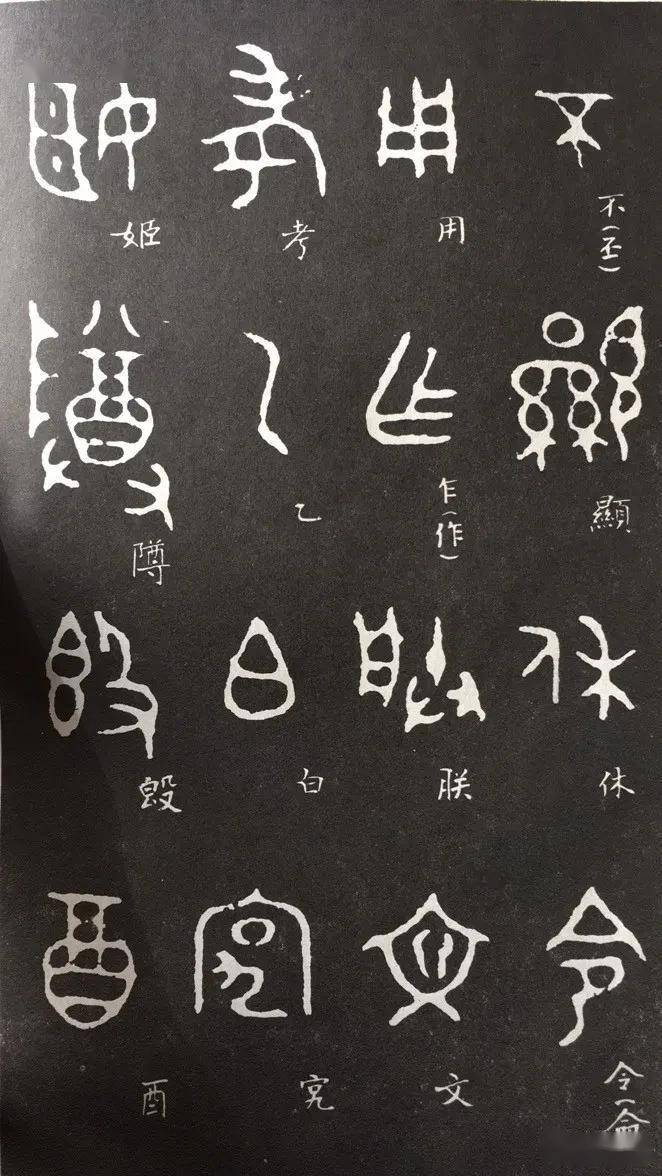 不(丕)
顯
休
令(命
用
乍(作)
朕
文
考
乙
白
宄
姬
𣪘
酉